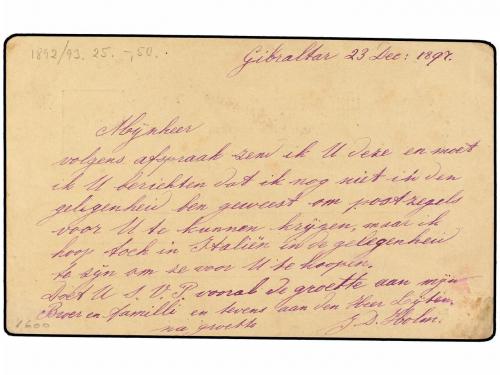 1892/93. 25. -,50.
Gibraltar 23 Dec: 1897.
Mijnheer
volgens afspraak zem ik U deze en moet
ik U berichten dat ik nog niet in den
gelegenheid ben geweest om postzegels
voor U te kunnen krijgen, maar ik
hoop toch in Italiën in de gelegenheid
te zijn om ze voor U te koopen.
Doet U S.V.P vooral de groette aan mijn
Broer en familli en tevens aan den Heer
na groette J. D. Holm.
1600